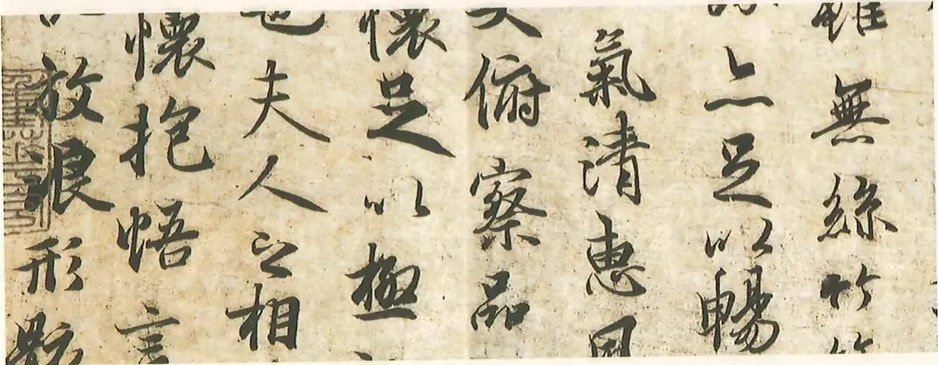 雖無絲竹
亦足以暢
氣清惠風
大俯察品
懷足以極
也夫人之相
懷抱悟言
放浪形骸